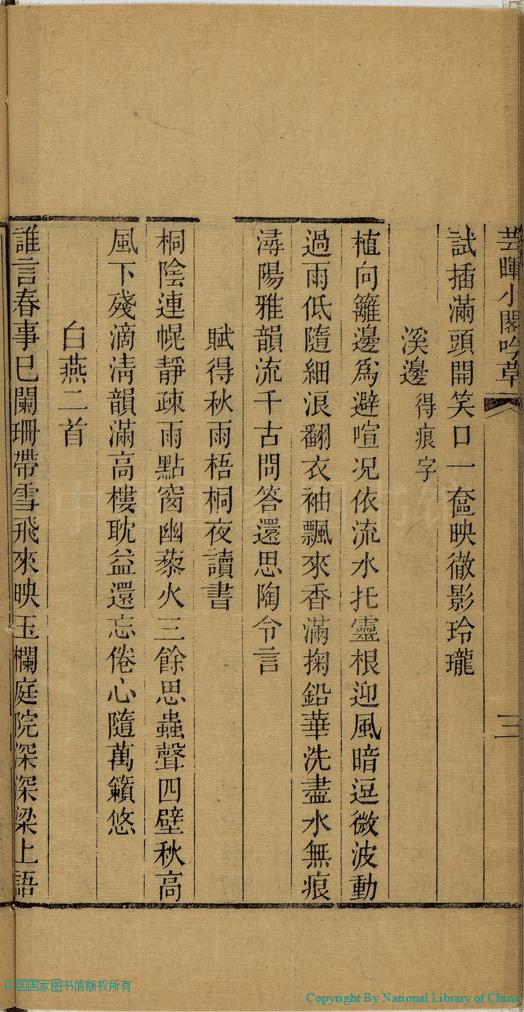 芸暉小閣吟草
三
試插滿頭開笑口一奩映徹影玲瓏
溪邊得痕字
植向籬邊爲避喧況依流水托靈根迎風暗逗微波動
過雨低隨細浪翻衣袖飄來香滿掬鉛華洗盡水無痕
潯陽雅韻流千古問答還思陶令言
賦得秋雨梧桐夜讀書
桐陰連幌靜疎雨點窗幽藜火三餘思蟲聲四壁秋高
風下殘滴清韻滿高樓耽益還忘倦心隨萬籟悠
白燕二首
誰言春事巳闌珊帶雪飛來映玉欄庭院深深梁上語
中国国家图书馆版权所有
Copyright By National Library of China